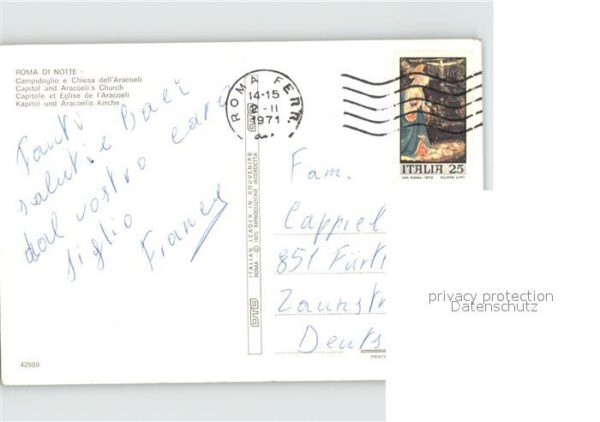 ROMA DI NOTTE -
Campidoglio e Chiesa dell'Aracoeli
Capitol and Aracoeli's Church
Capitole et Eglise de l'Aracoeli
Kapitol und Aracoelis Kirche
Tanti Baci
salutie cari
dal vostro
figlio
Franco
42089
ITALIAN LEADER IN SOUVENIRS
ROMA - © 1970 RIPRODUZIONE INTERDETTA
OTO
ROMA FERR.
14-15
2-II
1971
ITALIA 25
Fam.
Cappiel
851 Fürt
Zaunstr
Deuts
PRINTE
privacy protection
Datenschutz